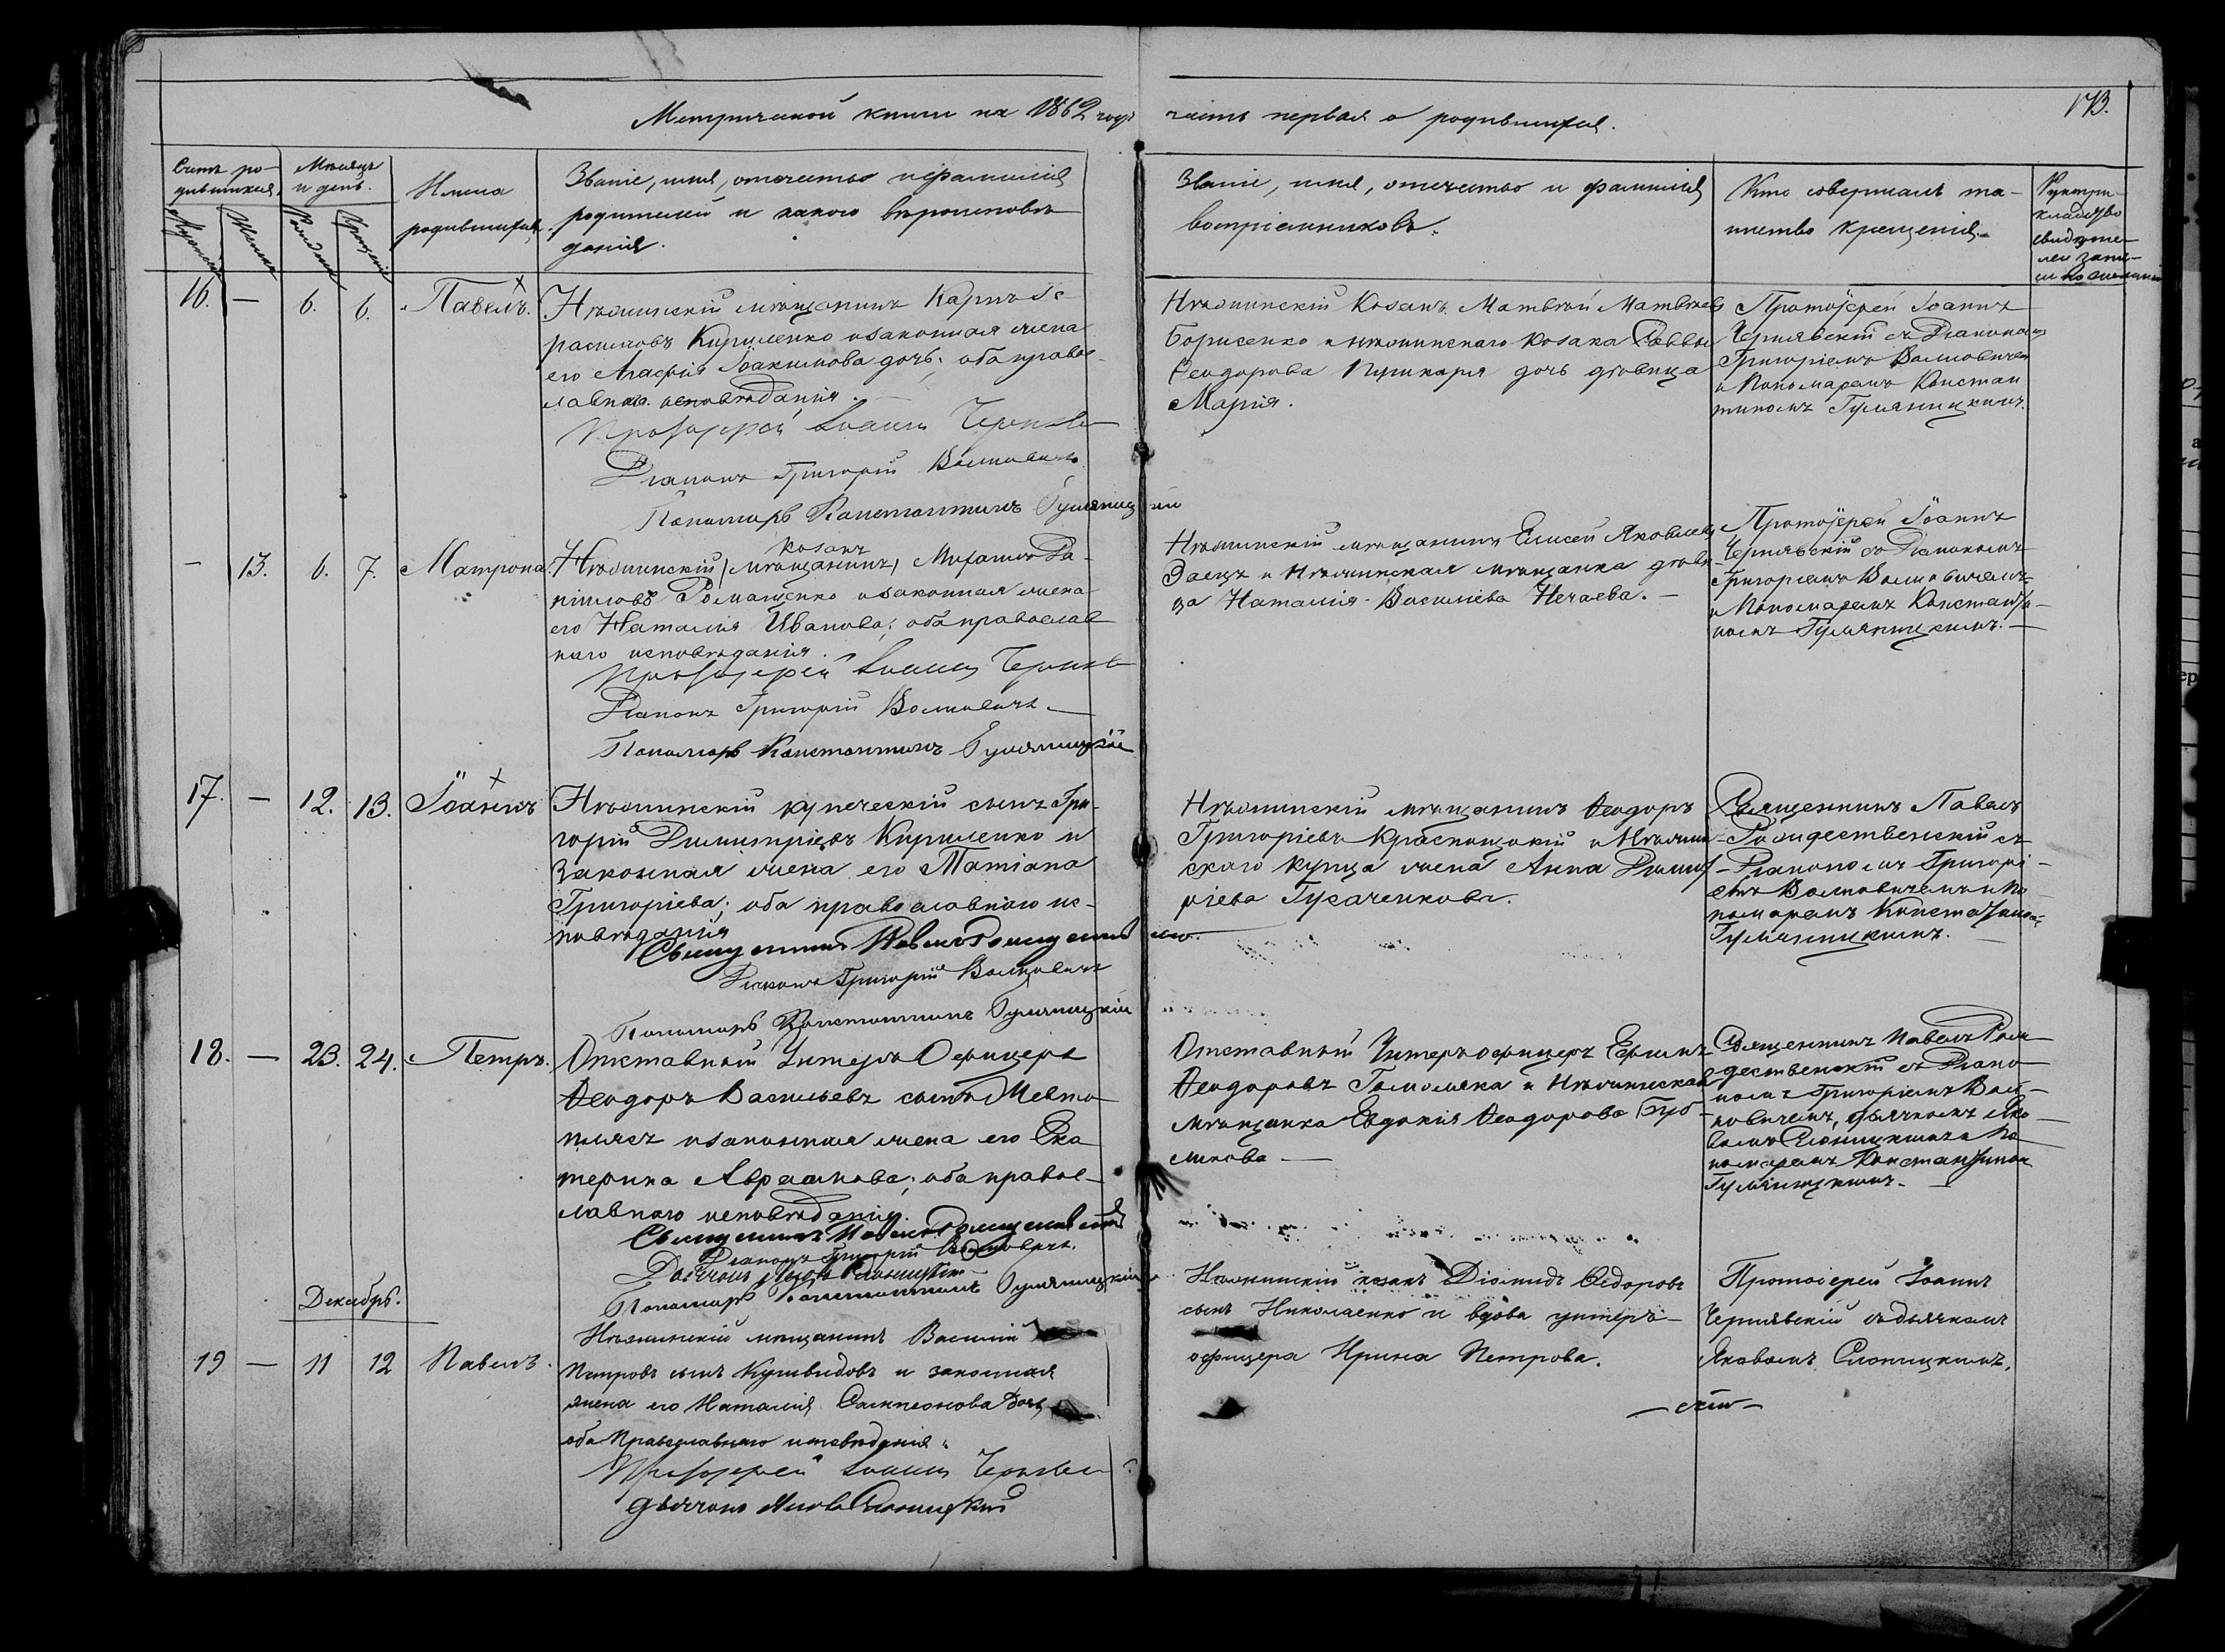 Метрической книги на 1862 годъ
часть первая о родившихся.
173.
Счетъ ро-
дившихся.
Мѣсяцъ
и день.
Имена
родившихся.
Званіе, имя, отечество и фамилія
родителей и какого вѣроисповѣ
данія.
Званіе, имя, отечество и фамилія
воспріемниковъ.
Кто совершалъ та-
инство крещенія.
16. — 6. 6. Павелъ.
Нѣжинскій мѣщанинъ Карпъ Ге-
расимовъ Кириленко и законная жена
его Агафія Іоакимова дочь; оба правос-
лавнаго исповѣданія.
Протоіерей Іоаннъ
Діаконъ Григорій Волковичъ
Пономарь Константинъ Гумяницкій
Нѣжинскій Козакъ Матвѣй Матвѣевъ
Борисенко и нѣжинскаго козака Саввы
Ѳеодорова Пушкаря дочь дѣвица
Марія.
Протоіерей Іоаннъ
Чернявскій съ Діакономъ
Григоріемъ Волковичемъ
и Пономаремъ Констан
тиномъ Гумяницкимъ.
— 13. 6. 7. Матрона.
козакъ
Нѣжинскій (мѣщанинъ)
Ромащенко и законная жена
его Наталія Иванова; оба православ
наго исповѣданія.
Протоіерей Іоаннъ
Діаконъ Григорій Волковичъ
Пономарь Константинъ Гумяницкій
Нѣжинскій мѣщанинъ Елисей Яковлевъ
Заецъ и Нѣжинская мѣщанка дѣви
ца Наталія Васильева Нечаева.
Протоіерей Іоаннъ
Чернявскій съ Діакономъ
Григоріемъ Волковичемъ
и Пономаремъ Константи-
номъ Гумяницкимъ.
17. — 12. 13. Іоаннъ
Нѣжинскій купеческій сынъ Гри-
горій Димитріевъ Кириленко и
законная жена его Татіана
Григоріева; оба православнаго ис-
повѣданія
Священникъ Павелъ Рождественскій
Діаконъ Григорій Волковичъ
Пономарь Константинъ Гумяницкій
Нѣжинскій мѣщанинъ Ѳеодоръ
Григоріевъ и Нѣжин-
скаго купца жена Анна Димит
ріева Гусаченкова.
Священникъ Павелъ
Рождественскій съ
Діакономъ Григорі-
емъ Волковичемъ и По-
номаремъ Константиномъ
Гумяницкимъ.
18. — 23. 24. Петръ.
Отставный Унтеръ Офицеръ
Ѳеодоръ Васильевъ сынъ
и законная жена его Ека
терина Авраамова; оба правос-
лавнаго исповѣданія.
Священникъ Павелъ Рождественскій
Діаконъ Григорій Волковичъ.
Дьячокъ Яковъ
Пономарь Константинъ Гумяницкій
Отставный Унтеръ офицеръ
Ѳеодоровъ и Нѣжинская
мѣщанка Евдокія Ѳеодорова Буб-
ликова
Священникъ Павелъ Рож-
дественскій съ Діако-
номъ Григоріемъ Вол-
ковичемъ, дьячкомъ Яко-
вомъ и По-
номаремъ Константиномъ
Гумяницкимъ.
Декабрь.
19 — 11 12 Павелъ.
Нѣжинскій мѣщанинъ Василій
Петровъ сынъ и законная
жена его Наталія дочь,
оба Православнаго исповѣданія.
Протоіерей Іоаннъ
дьячокъ Яковъ
Нѣжинскій козакъ Діомидъ Ѳедоровъ
сынъ Николаенко и вдова унтеръ-
офицера Ирина Петрова.
Протоіерей Іоаннъ
Чернявскій съ дьячкомъ
Яковомъ